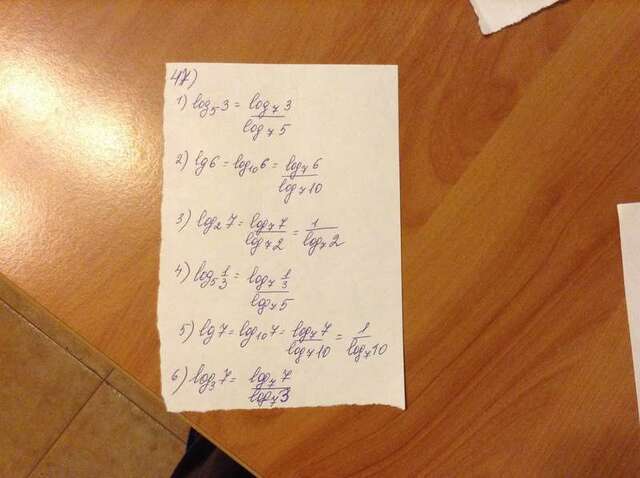 47)
1) log₅3 = log₇3 / log₇5
2) lg6 = log₁₀6 = log₇6 / log₇10
3) log₂7 = log₇7 / log₇2 = 1 / log₇2
4) log₅ 1/3 = log₇ 1/3 / log₇5
5) lg7 = log₁₀7 = log₇7 / log₇10 = 1 / log₇10
6) log₃7 = log₇7 / log₇3